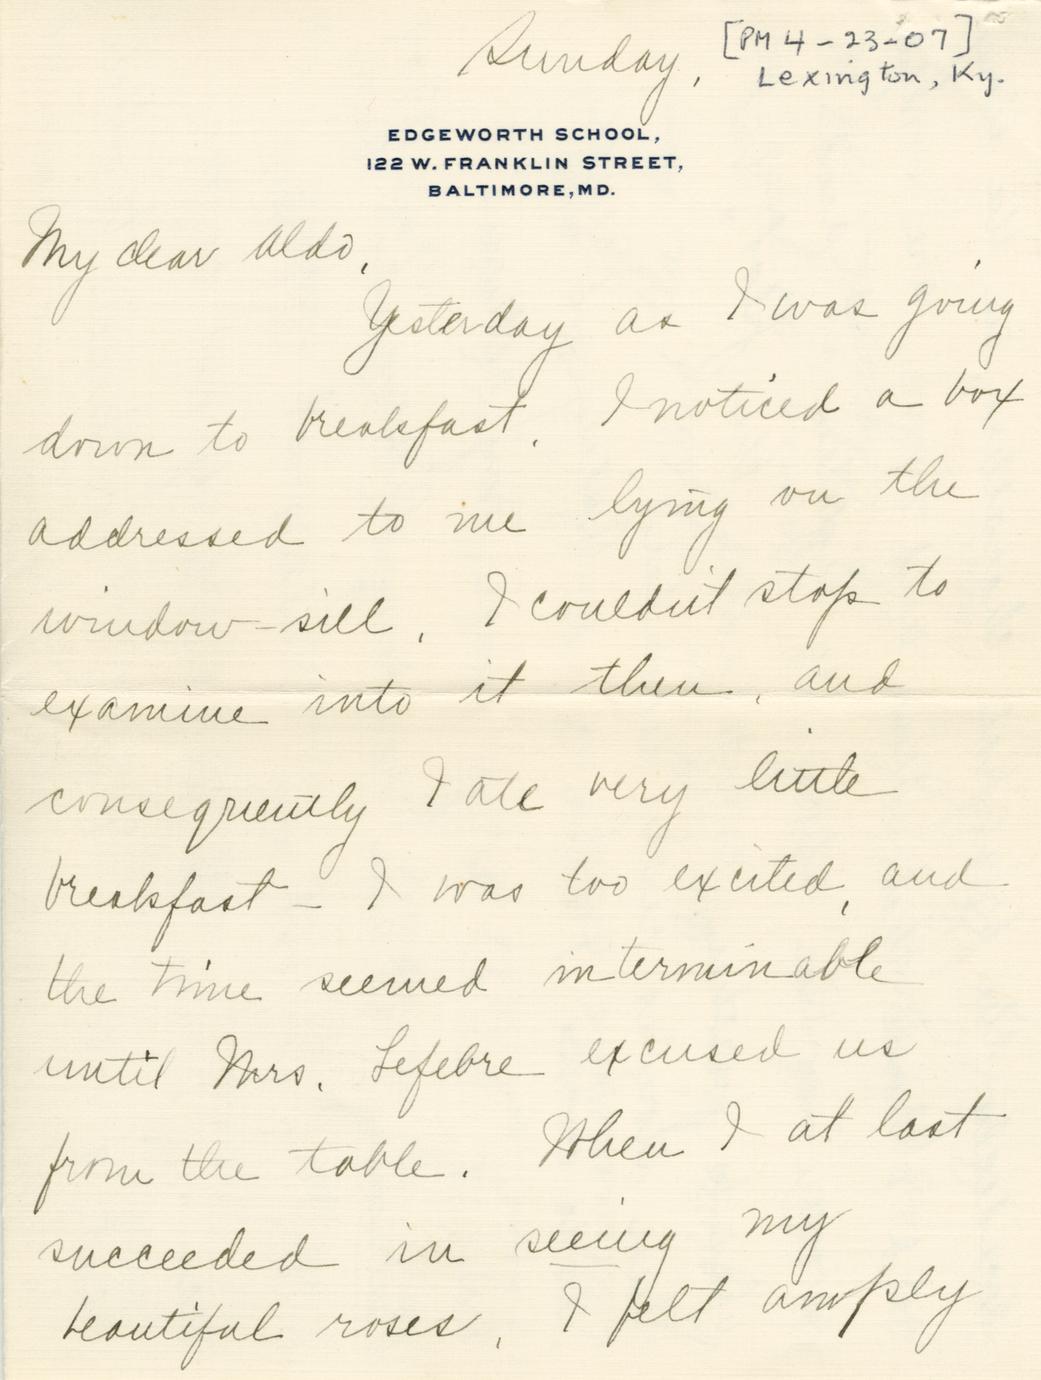 Sunday, [PM 4-23-07]
Lexington, Ky.
EDGEWORTH SCHOOL,
122 W. FRANKLIN STREET,
BALTIMORE, MD.
My dear Aldo,
Yesterday as I was going
down to breakfast, I noticed a box
addressed to me lying on the
window-sill. I couldn't stop to
examine into it then, and
consequently I ate very little
breakfast - I was too excited, and
the time seemed interminable
until Mrs. Lefebre excused us
from the table. When I at last
succeeded in seeing my
beautiful roses, I felt amply